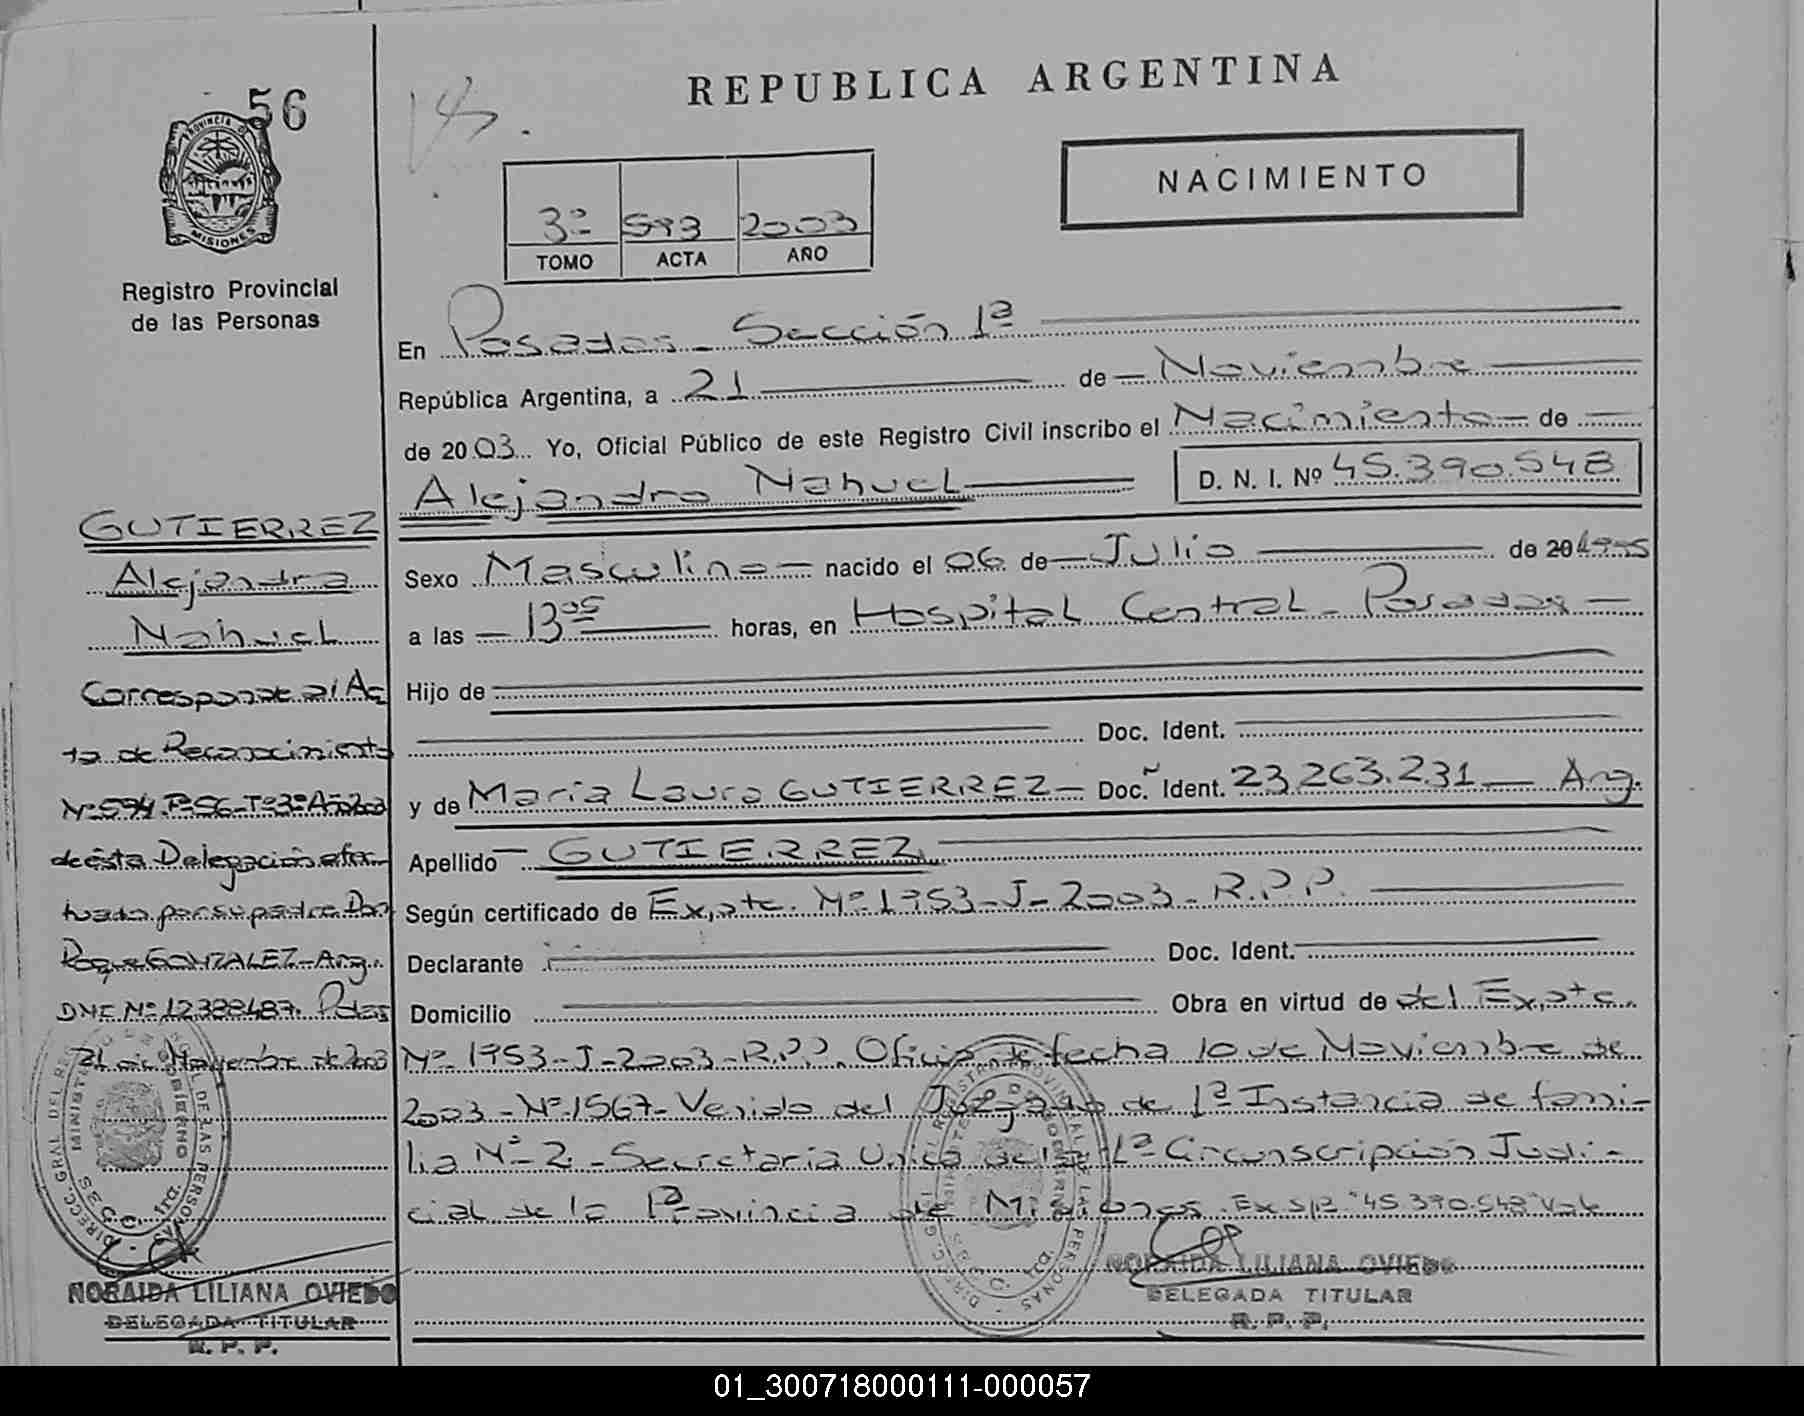 56
PROVINCIA DE
MISIONES
Registro Provincial
de las Personas
REPUBLICA ARGENTINA
NACIMIENTO
3º 593 2003
TOMO ACTA AÑO
En Posadas - Sección 1ª
República Argentina, a 21 de Noviembre
de 2003. Yo, Oficial Público de este Registro Civil inscribo el Nacimiento de
Alejandro Nahuel D. N. I. Nº 45.390.548
Sexo Masculino nacido el 06 de Julio de 20 1995
a las 13 05 horas, en Hospital Central - Posadas
Hijo de
Doc. Ident.
y de Maria Laura GUTIERREZ Doc. Ident. 23.263.231 Arg.
Apellido GUTIERREZ
Según certificado de Expte. Nº 1953-J-2003-R.P.P.
Declarante Doc. Ident.
Domicilio Obra en virtud de del Expte.
Nº 1953-J-2003-R.P.P. Oficio de fecha 10 de Noviembre de
2003-Nº 1567- Venido del Juzgado de 1ª Instancia de fami-
lia Nº 2.- Secretaria Unica de la 1ª Circunscripción Judi-
cial de la Provincia de Misiones. "45.390.548" Vale
NORAIDA LILIANA OVIEDO
DELEGADA TITULAR
R. P. P.
GUTIERREZ
Alejandro
Nahuel
Corresponde al Ac
ta de Reconocimiento
Nº 594 Fº 56-Tº 3º Año 2003
de ésta Delegación efec
tuado por su padre Don
Roque GONZALEZ-Arg.
DNI Nº 12388487. Pdas
21 de Noviembre de 2003
NORAIDA LILIANA OVIEDO
DELEGADA TITULAR
R. P. P.
01_300718000111-000057